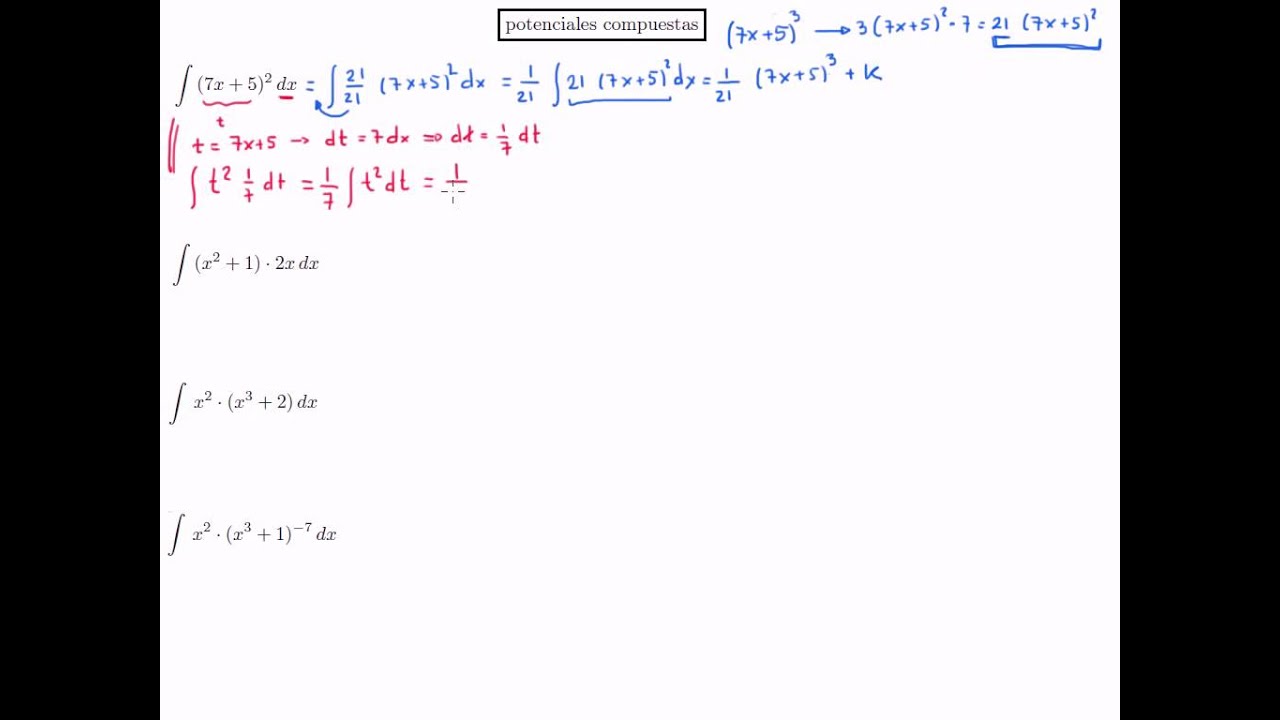 potenciales compuestas
(7x+5)³ → 3(7x+5)²·7 = 21 (7x+5)²
∫ (7x + 5)² dx = ∫ 21/21 (7x+5)² dx = 1/21 ∫ 21 (7x+5)² dx = 1/21 (7x+5)³ + K
t
t = 7x+5 → dt = 7dx ⇒ dt = 1/7 dt
∫ t² 1/7 dt = 1/7 ∫ t² dt = 1
∫ (x² + 1) · 2x dx
∫ x² · (x³ + 2) dx
∫ x² · (x³ + 1)⁻⁷ dx